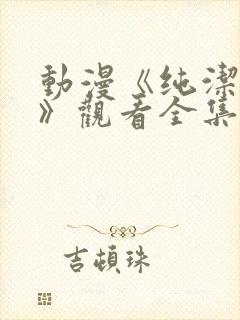 動漫《纯潔
》觀看全集
吉頓珠